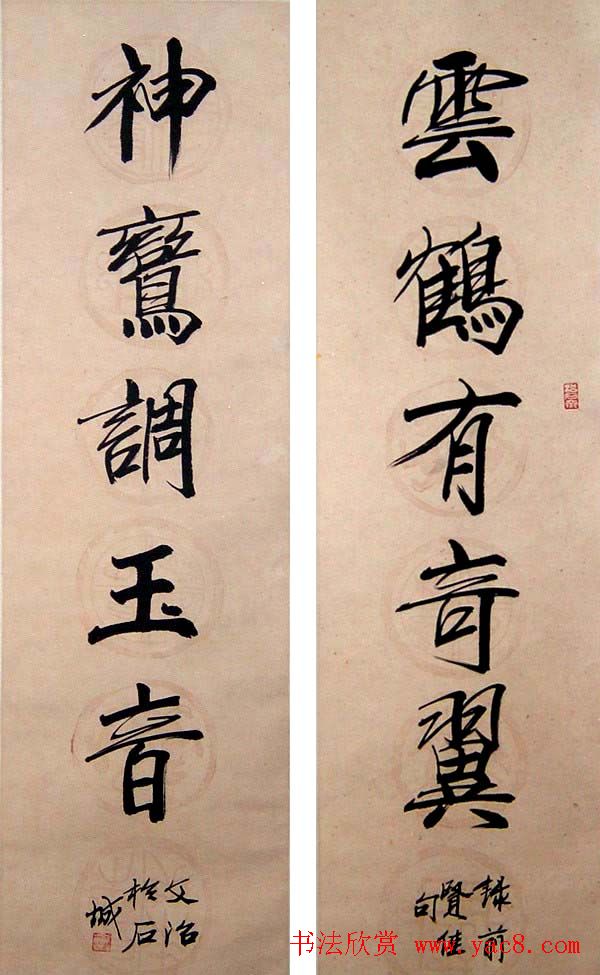 雲鶴有奇翼
錄前
賢佳
句
神鸞調玉音
文治
於石
城
书法欣赏 www.yac8.com